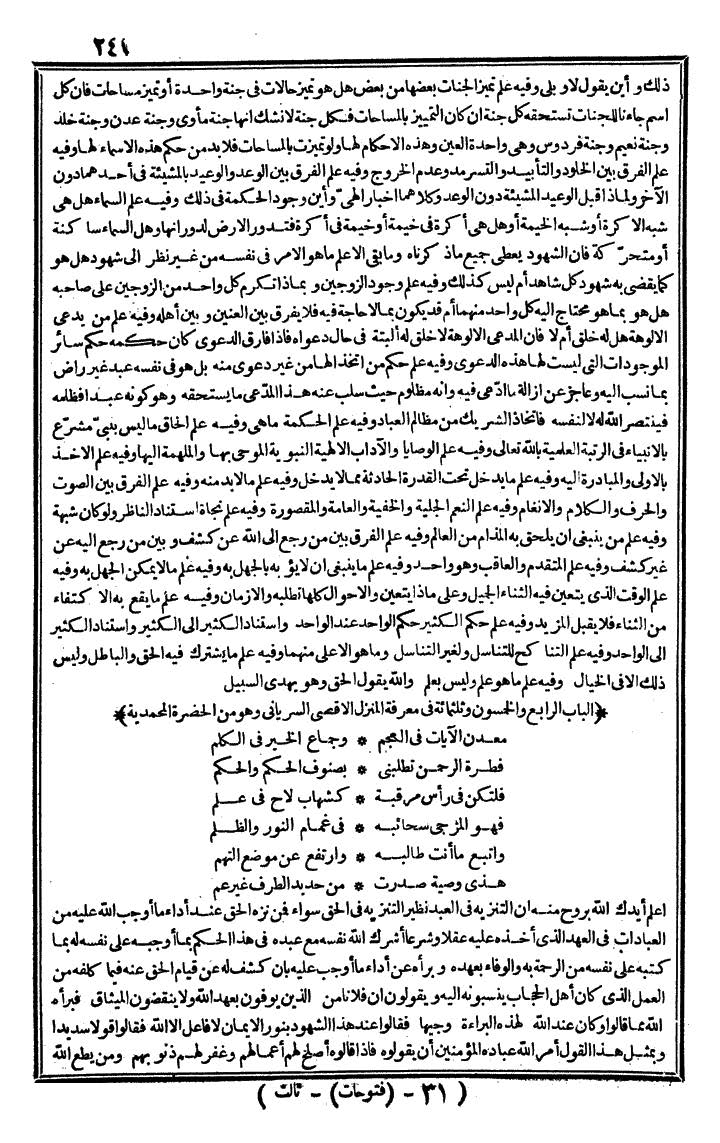 ٢٤١
ذلك وأين يقول لاوبلى وفيه علم تميز الجنات بعضها من بعض هل هو تميز حالات فى جنة واحدة أو تميز مساحات فان كل
اسم جاءنا للجنات تستحقه كل جنة ان كان التمييز بالمساحات فكل جنة لانشك انها جنة مأوى وجنة عدن وجنة خلد
وجنة نعيم وجنة فردوس وهى واحدة العين وهذه الاحكام لها ولو تميزت بالمساحات فلابد من حكم هذه الاسماء لها وفيه
علم الفرق بين الخلود والتأبيد والتسرمد وعدم الخروج وفيه علم الفرق بين الوعد والوعيد بالمشيئة فى أحدهما دون
الآخر ولماذا قبل الوعيد المشيئة دون الوعد وكلاهما اخبار الهى وأين وجود الحكمة فى ذلك وفيه علم السماء هل هى
شبه الاكرة أو شبه الخيمة أو هل هى أكرة فى خيمة أو خيمة فى أكرة فتدور الارض لدورانها وهل السماء ساكنة
أو متحركة فان الشهود يعطى جميع ماذكرناه ومابقى الاعلم ماهو الامر فى نفسه من غير نظر الى شهود هل هو
كما يقضى به شهود كل شاهد أم ليس كذلك وفيه علم وجود الزوجين وبماذا تكرم كل واحد من الزوجين على صاحبه
هل هو بما هو محتاج اليه كل واحد منهما أم قد يكون بمالاحاجة فيه فلا يفرق بين العنين وبين أهله وفيه علم من يدعى
الالوهة هل له خلق أم لا فان المدعى الالوهة لاخلق له ألبتة فى حال دعواه فاذا فارق الدعوى كان حكمه حكم سائر
الموجودات التى ليست لها هذه الدعوى وفيه علم حكم من اتخذ الها من غير دعوى منه بل هو فى نفسه عبد غير راض
بما نسب اليه وعاجز عن ازالة ماادعى فيه وانه مظلوم حيث سلب عنه هذا المدعى مايستحقه وهو كونه عبدا فظلمه
فينتصر الله له لالنفسه فاتخاذ الشريك من مظالم العباد وفيه علم الحكمة ماهى وفيه علم الحاق ماليس بنبى مشرع
بالانبياء فى الرتبة العلمية بالله تعالى وفيه علم الوصايا والآداب الالهية النبوية الموحى بها والملهمة اليها وفيه علم الاخذ
بالاولى والمبادرة اليه وفيه علم مايدخل تحت القدرة الحادثة ممالايدخل وفيه علم مالابد منه وفيه علم الفرق بين الصوت
والحرف والكلام والانغام وفيه علم النعم الجلية والخفية والعامة والمقصورة وفيه علم نجاة استناد الناظر ولو كان شبهة
وفيه علم من ينبغى ان يلحق به المذام من العالم وفيه علم الفرق بين من رجع الى الله عن كشف وبين من رجع اليه عن
غير كشف وفيه علم المتقدم والعاقب وهو واحد وفيه علم ماينبغى ان لايؤبه بالجهل به وفيه علم مالايمكن الجهل به وفيه
علم الوقت الذى يتعين فيه الثناء الجميل وعلى ماذا يتعين والاحوال كلها تطلبه والازمان وفيه علم مايقع به الاكتفاء
من الثناء فلا يقبل المزيد وفيه علم حكم الكثير حكم الواحد عند الواحد واستناد الكثير الى الكثير واستناد الكثير
الى الواحد وفيه علم التناكح للتناسل ولغير التناسل وماهو الاعلى منهما وفيه علم مايشترك فيه الحق والباطل وليس
ذلك الا فى الخيال وفيه علم ماهو علم وليس بعلم والله يقول الحق وهو يهدى السبيل
﴿الباب الرابع والخمسون وثلثمائة فى معرفة المنزل الاقصى السريانى وهو من الحضرة المحمدية﴾
معدن الآيات فى العجم * وجماع الخير فى الكلم
فطرة الرحمن تطلبنى * بصنوف الحكم والحكم
فلتكن فى رأس مرقبة * كشهاب لاح فى علم
فهو المزجى سحائبه * فى غمام النور والظلم
واتبع ماأنت طالبه * وارتفع عن موضع التهم
هذى وصية صدرت * من حديد الطرف غير عم
اعلم أيدك الله بروح منه ان التنزيه فى العبد نظير التنزيه فى الحق سواء فمن نزه الحق عند أداء ماأوجب الله عليه من
العبادات فى العهد الذى أخذه عليه عقلا وشرعا أشرك الله نفسه مع عبده فى هذا الحكم بما أوجبه على نفسه له بما
كتبه على نفسه من الرحمة به والوفاء بعهده وبرأه عن أداء ماأوجب عليه بان كشف له عن قيام الحق عنه فيما كلفه من
العمل الذى كان أهل الحجاب ينسبونه اليه ويقولون ان فلانا من الذين يوفون بعهد الله ولاينقضون الميثاق فبرأه
الله مما قالوا وكان عند الله لهذه البراءة وجيها فقالوا عند هذا الشهود بنور الايمان لافاعل الاالله فقالوا قولا سديدا
وبمثل هذا القول أمر الله عباده المؤمنين أن يقولوه فاذا قالوه أصلح لهم أعمالهم وغفر لهم ذنوبهم ومن يطع الله
( ٣١ - (فتوحات) - ثالث )